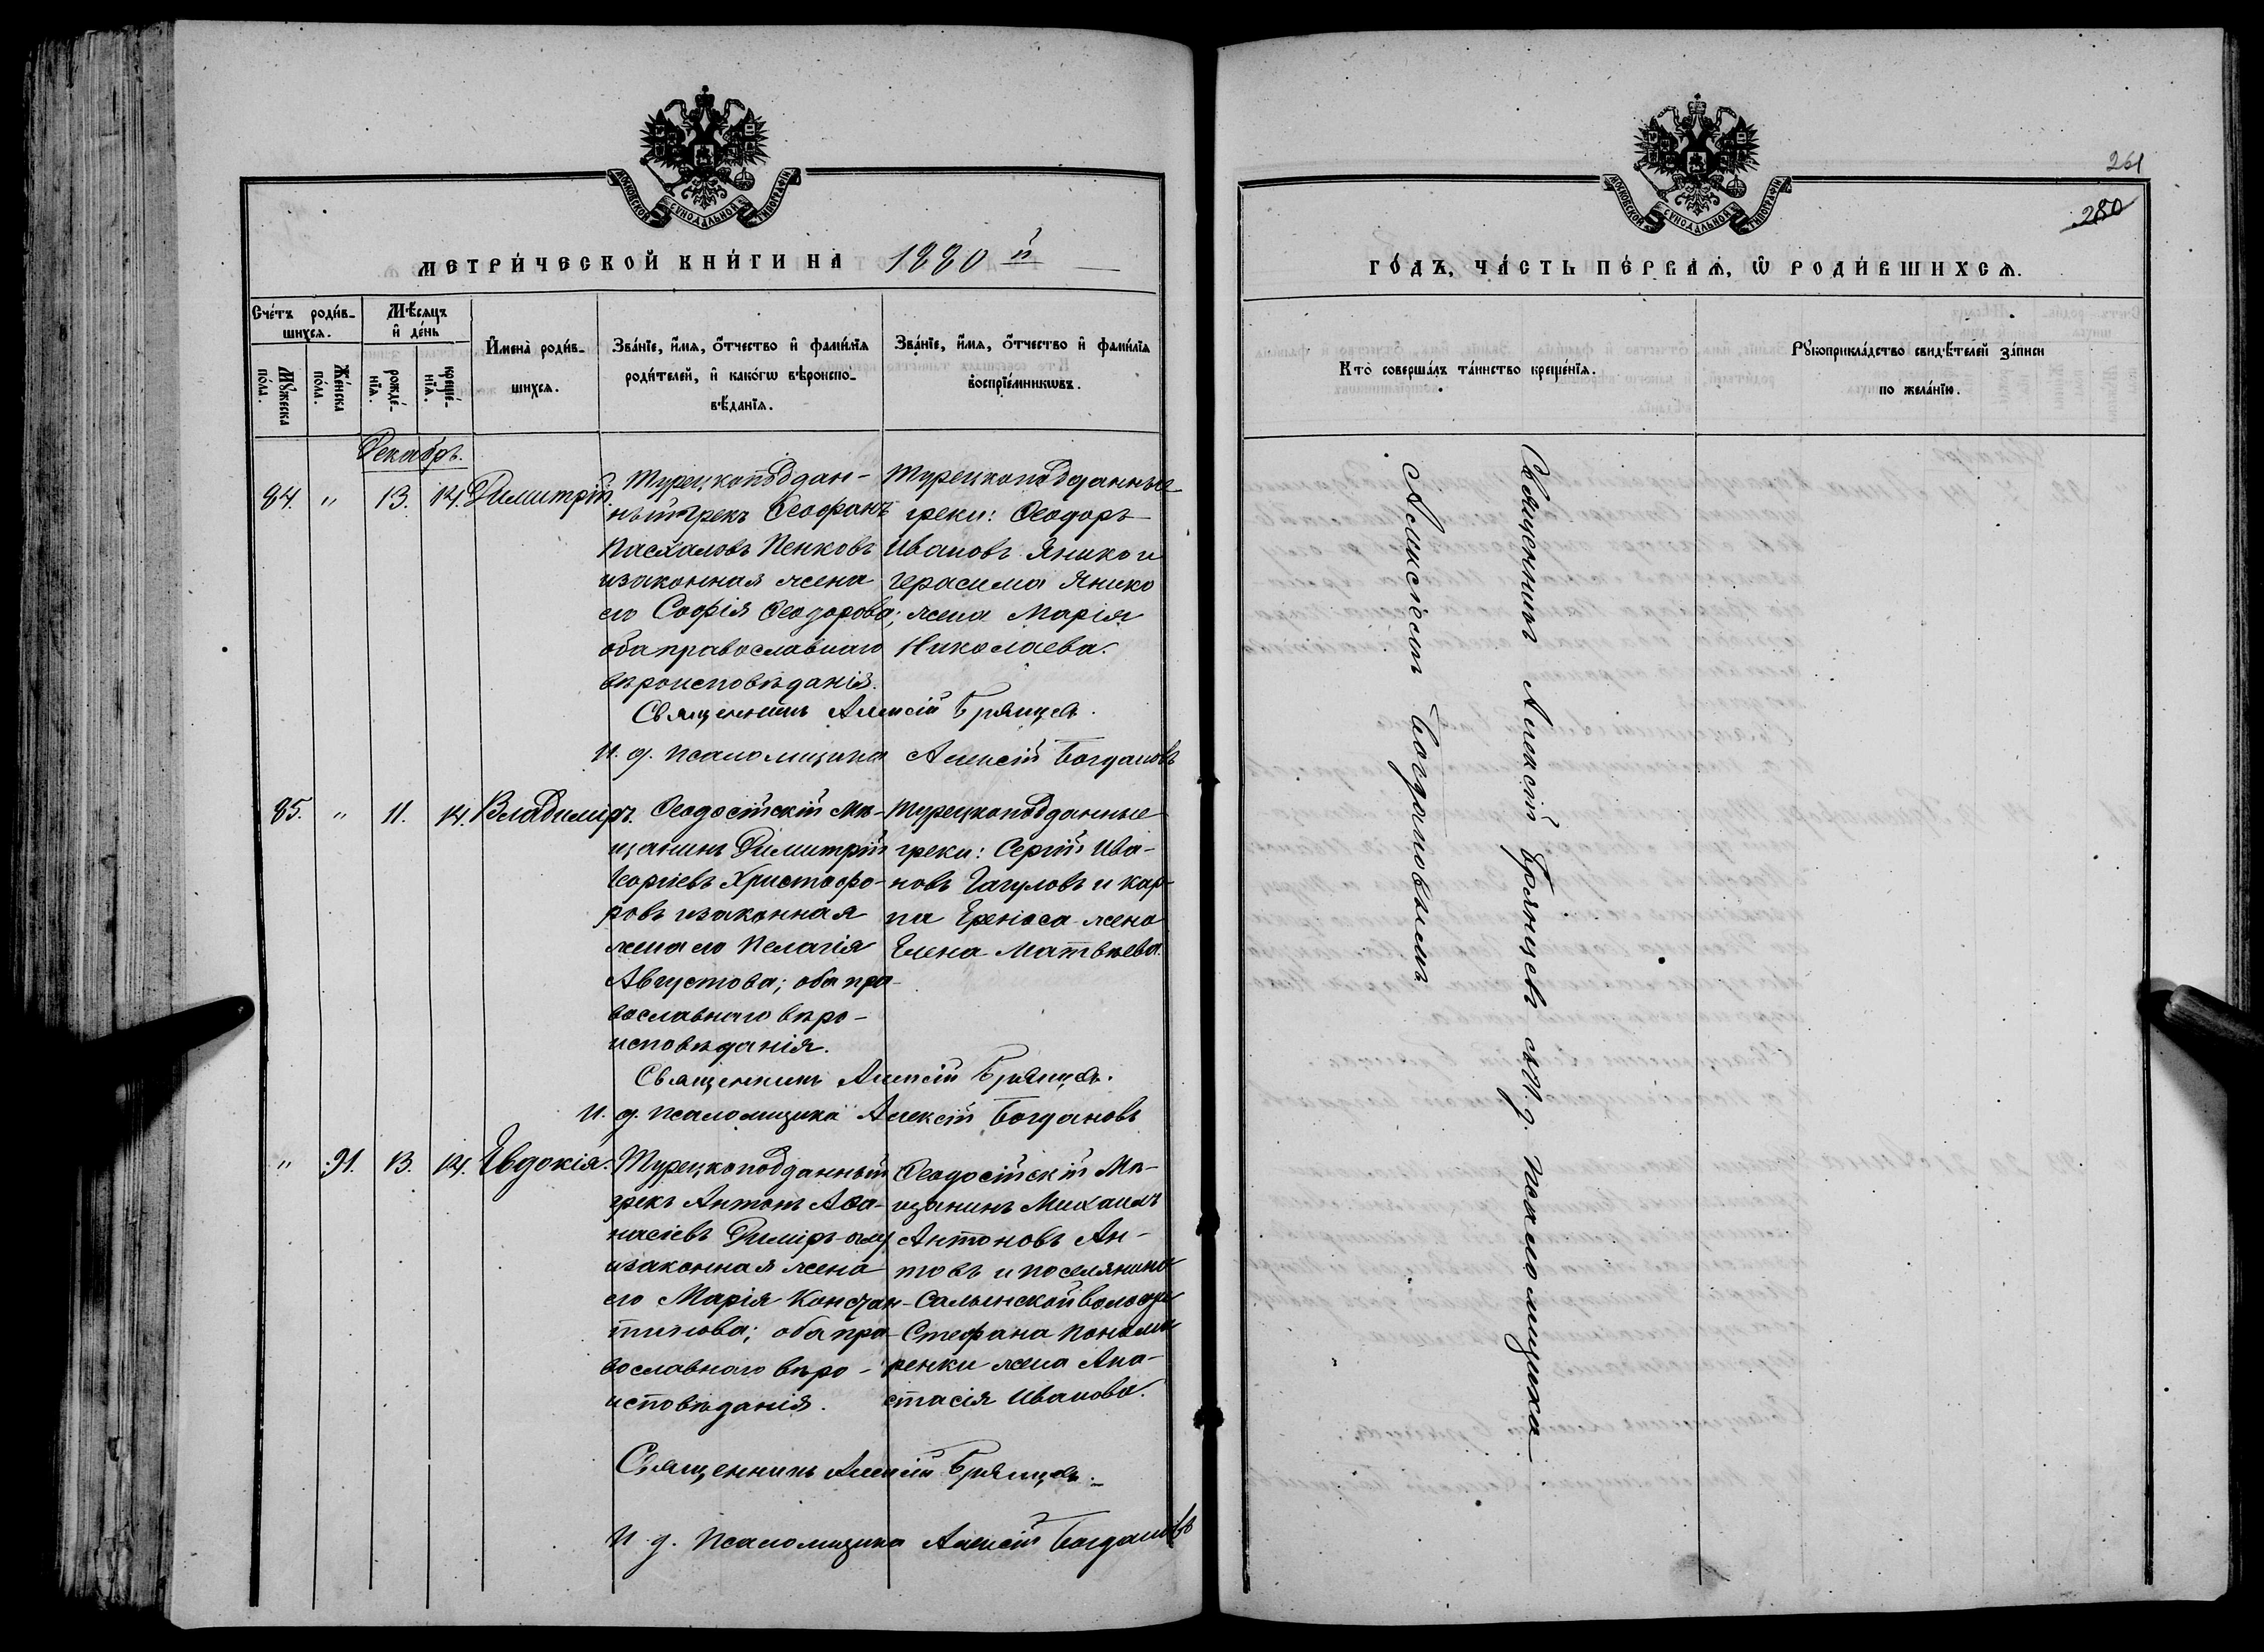 МОСКОВСКОЙ СѴНОДАЛЬНОЙ ТИПОГРАФІИ
МЕТРИ́ЧЕСКОЙ КНИ́ГИ НА 1880 й
Сче́тъ роди́в-
шихсѧ.
Мѣ́сѧцъ
и҆ де́нь
Мꙋ́жеска
по́ла.
Же́нска
по́ла.
рожде́-
нїѧ.
креще́-
нїѧ.
И҆мена̀ роди́в-
шихсѧ.
Зва́нїе, и҆́мѧ, ѻ҆́тчество и҆ фами́лїѧ
роди́телей, и҆ како́гѡ вѣроиспо-
вѣ́данїѧ.
Зва́нїе, и҆́мѧ, ѻ҆́тчество и҆ фами́лїѧ
воспрїе́мникѡвъ.
Декабрь.
84. " 13. 14. Димитрій.
Турецкоподдан-
ный грекъ Ѳеофанъ
Пасхаловъ Пенковъ
и законная жена
его Софія Ѳеодорова;
оба православнаго
вѣроисповѣданія.
Турецкоподданные
греки: Ѳеодоръ
Ивановъ Янико и
Герасима Янико
жена Марія
Николаева.
Священникъ Алексій Брянцевъ.
И. д. псаломщика Алексій Богдановъ
85. " 11. 14. Владиміръ.
Ѳеодосійскій мѣ-
щанинъ Димитрій
Георгіевъ Христофо-
ровъ и законная
жена его Пелагія
Августова; оба пра-
вославнаго вѣро-
исповѣданія.
Турецкоподданные
греки: Сергій Ива-
новъ Гагуловъ и Кар-
па Ереніоса жена
Елена Матвѣева.
Священникъ Алексій Брянцевъ.
И. д. псаломщика Алексій Богдановъ
" 91. 13. 14. Евдокія.
Турецкоподданный
грекъ Антонъ Аѳа-
насіевъ Димиръ-оглу
и законная жена
его Марія Констан-
тинова; оба пра-
вославнаго вѣро-
исповѣданія.
Ѳеодосійскій мѣ-
щанинъ Михаилъ
Антоновъ Ан-
товъ и поселянина
Салынской волости
Стефана Понома
ренки жена Ана-
стасія Иванова.
Священникъ Алексій Брянцевъ.
И. д. Псаломщика Алексій Богдановъ
261
280
МОСКОВСКОЙ СѴНОДАЛЬНОЙ ТИПОГРАФІИ
ГО́ДЪ, ЧА́СТЬ ПЕ́РВАѦ, Ѡ҆ РОДИ́ВШИХСѦ.
Кто̀ соверша́лъ та́инство креще́нїѧ.
Рꙋкоприкла́дство свидѣ́телей за́писи
по жела́нїю.
Священникъ Алексій Брянцевъ съ И. д. псаломщика
Алексіемъ Богдановымъ